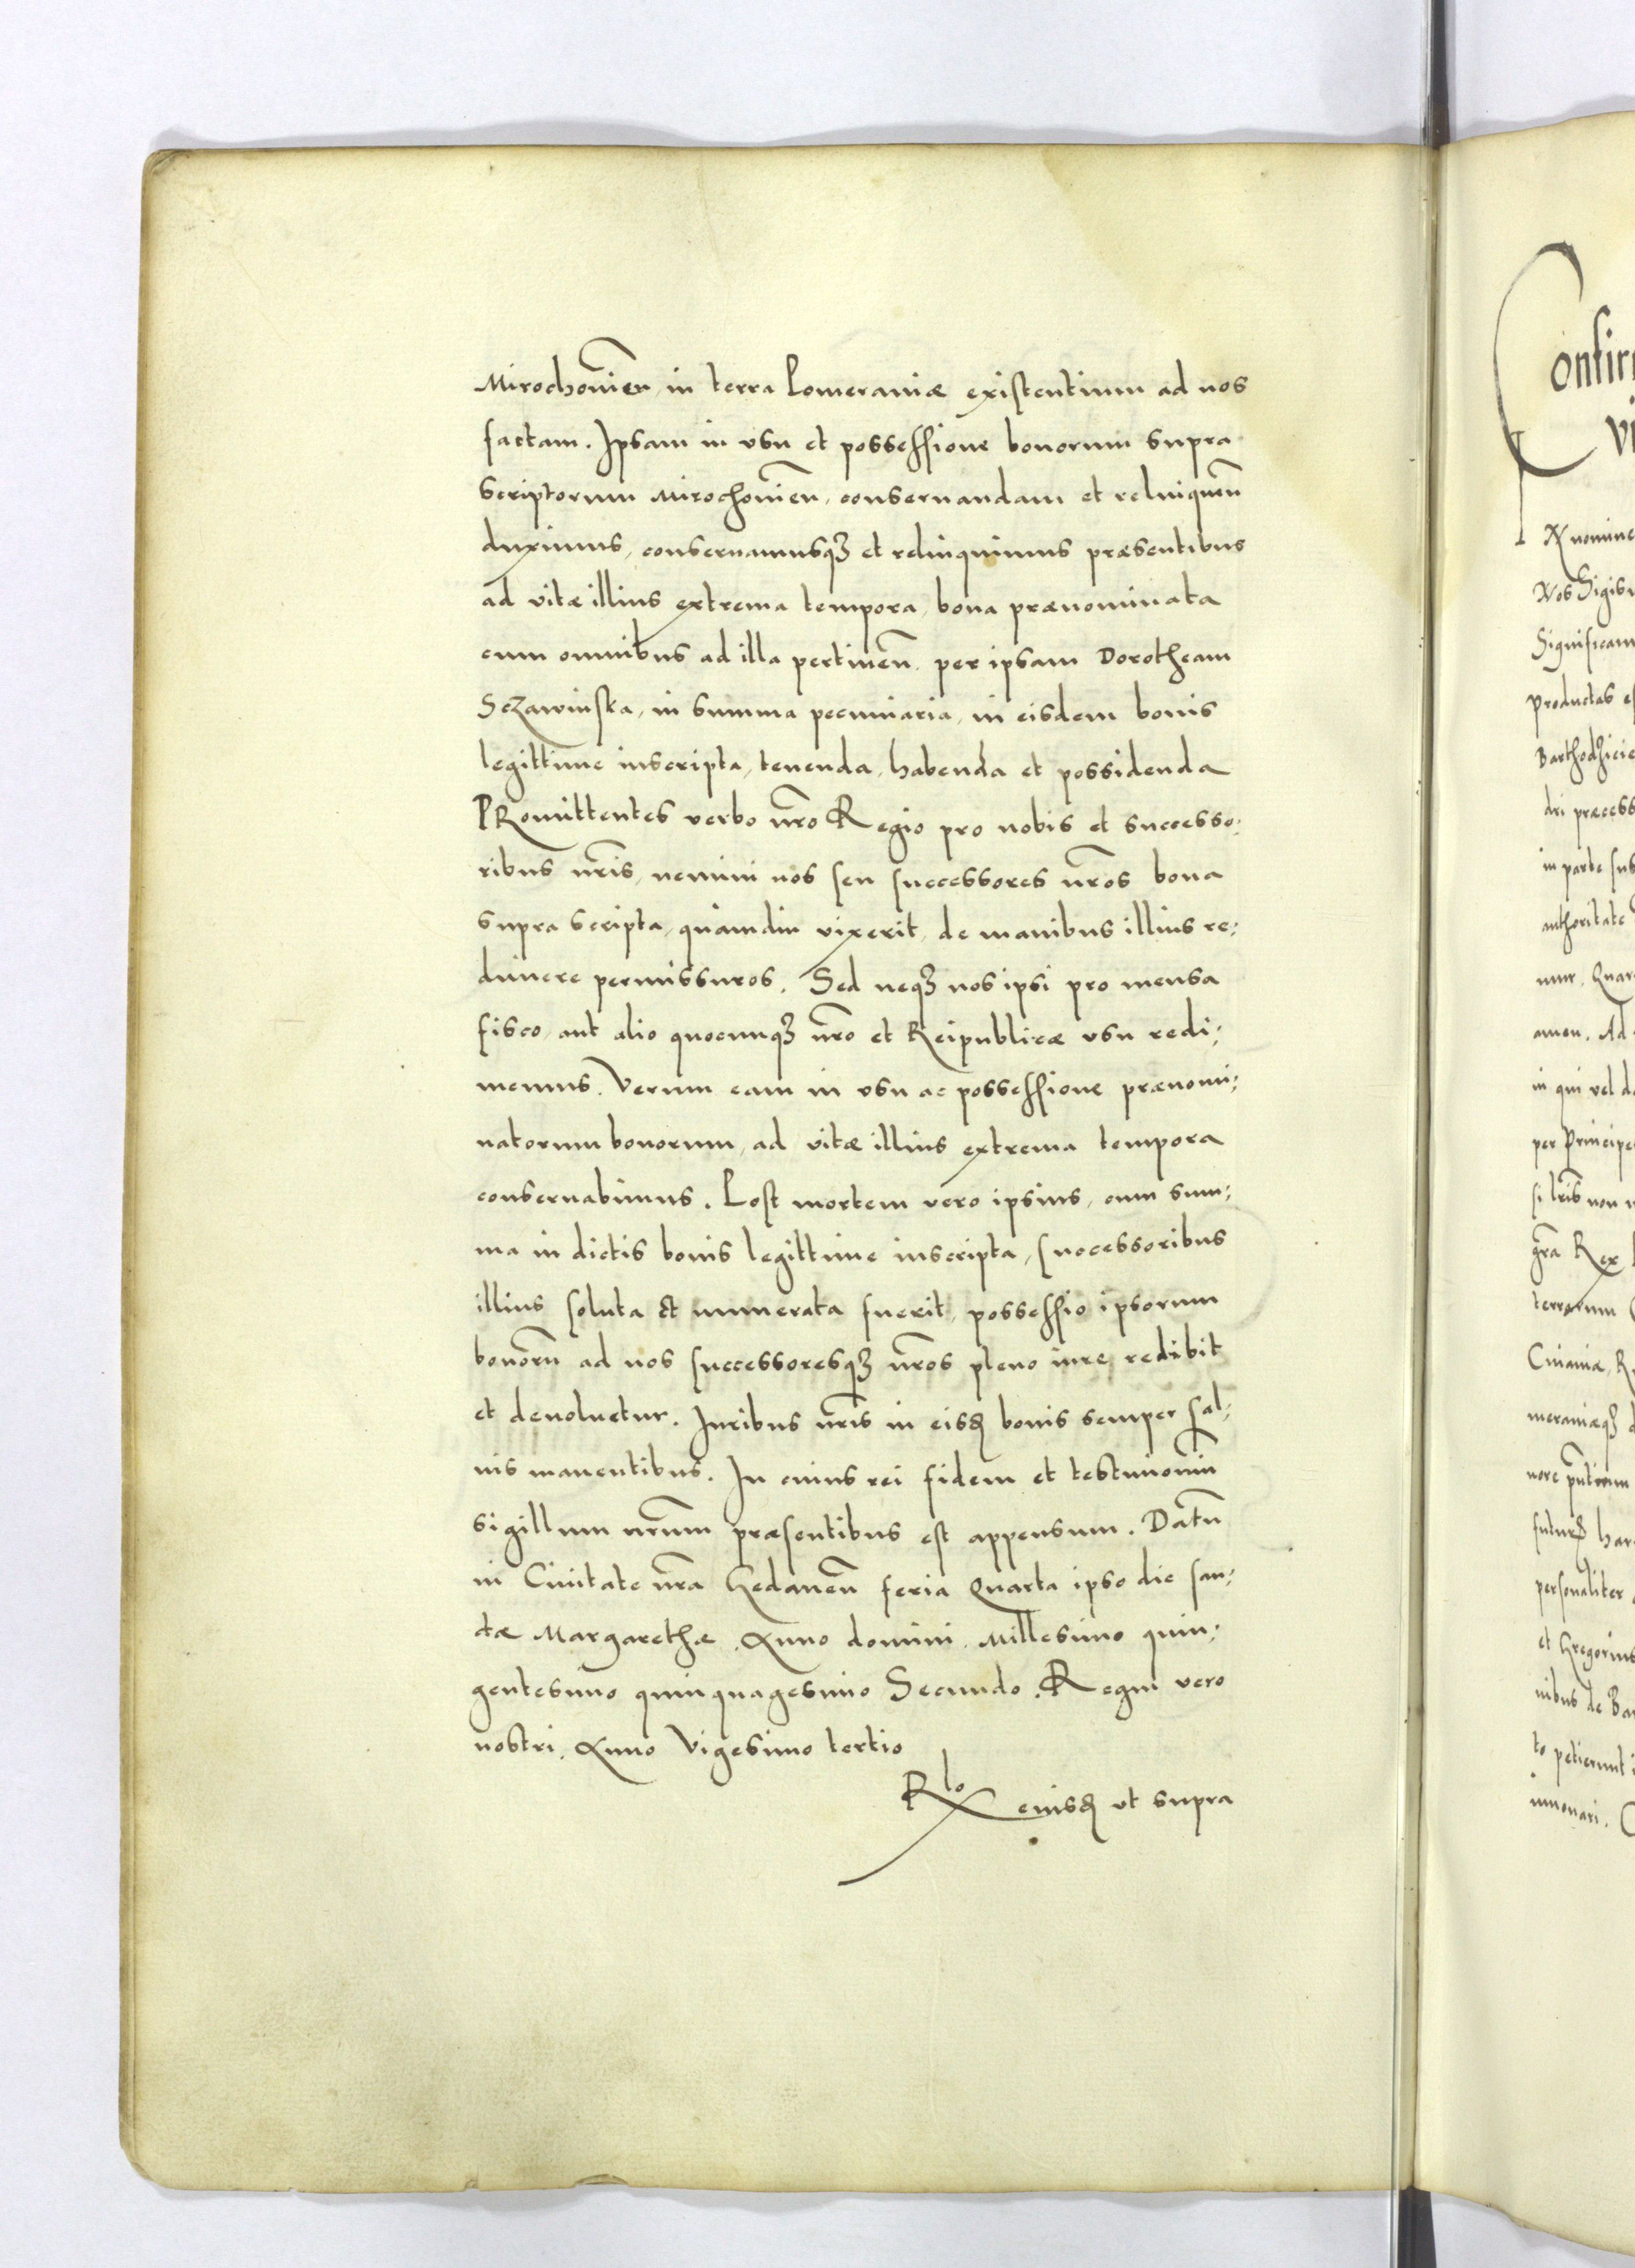 Mirochowien̄, in terra Pomeraniæ existentium ad nos
factam. Ipsam in vsu et possessione bonorum supra
scriptorum Mirochowien̄, conseruandam et relinquen̄
duximus, conseruamusqꝫ et relinquimus præsentibus
ad vitæ illius extrema tempora, bona prænominata
cum omnibus ad illa pertinen̄. per ipsam Dorotheam
Sczawinska, in summa pecuniaria, in eisdem bonis
legittime inscripta, tenenda, habenda et possidenda
PRomittentes verbo nr̄o Regio pro nobis et successo:
ribus nr̄is, nemini nos seu successores nr̄os bona
supra scripta, quamdiu vixerit, de manibus illius re:
dimere permissuros. Sed neqꝫ nos ipsi pro mensa
fisco, aut alio quocunqꝫ nr̄o et Reipublicæ vsu redi:
memus. Verum eam in vsu ac possessione prænomi:
natorum bonorum, ad vitæ illius extrema tempora
conseruabimus. Post mortem vero ipsius, cum sum:
ma in dictis bonis legittime inscripta, successoribus
illius soluta et numerata fuerit, possessio ipsorum
bonorū ad nos successoresqꝫ nr̄os pleno iure redibit
et deuoluetur. Iuribus nr̄is in eisꝺ bonis semper sal:
uis manentibus. In cuius rei fidem et testimoniū
sigillum nr̄um præsentibus est appensum. Datū
in Ciuitate nr̄a Gedanen̄ feria Quarta ipso die san:
ctæ Margarethæ. Anno domini. Millesimo quin:
gentesimo quinquagesimo Secundo. Regni vero
nostri. Anno Vigesimo tertio
R^lo eiusꝺ vt supra
Confir
vi
IN nomine
Nos Sigis
Significam
productas
Barthodzieie
dri præcess
in parte sus
authoritate
mur. Quar
amen. Ad
in qui vel
per Principe
si lr̄is non
gr̄a Rex
terrarum
Cuiauiæ, R
meraniæqꝫ
nore
futur
personaliter
et Gregorius
nibus de Bar
to petierunt
innouari.